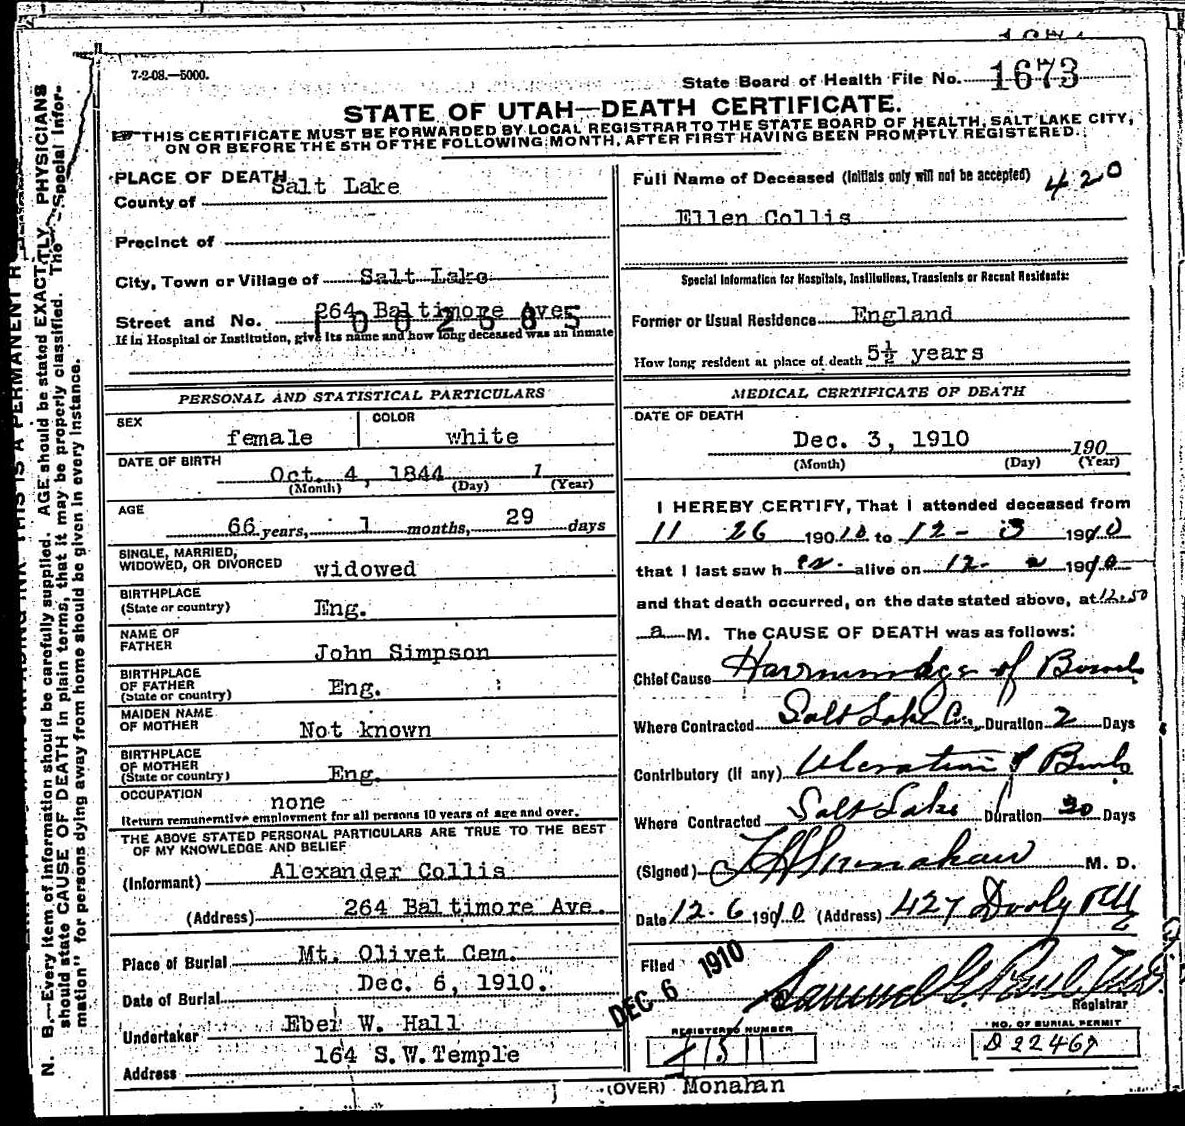 7-2-08.—5000.
State Board of Health File No. 1673
STATE OF UTAH—DEATH CERTIFICATE.
THIS CERTIFICATE MUST BE FORWARDED BY LOCAL REGISTRAR TO THE STATE BOARD OF HEALTH, SALT LAKE CITY,
ON OR BEFORE THE 5TH OF THE FOLLOWING MONTH, AFTER FIRST HAVING BEEN PROMPTLY REGISTERED.
PLACE OF DEATH
County of Salt Lake
Precinct of
City, Town or Village of Salt Lake
Street and No. 264 Baltimore Ave.
1002685
If in Hospital or Institution, give its name and how long deceased was an inmate
PERSONAL AND STATISTICAL PARTICULARS
SEX female COLOR white
DATE OF BIRTH Oct. 4, 1844 1
(Month) (Day) (Year)
AGE 66 years, 1 months, 29 days
SINGLE, MARRIED,
WIDOWED, OR DIVORCED widowed
BIRTHPLACE
(State or country) Eng.
NAME OF
FATHER John Simpson
BIRTHPLACE
OF FATHER
(State or country) Eng.
MAIDEN NAME
OF MOTHER Not known
BIRTHPLACE
OF MOTHER
(State or country) Eng.
OCCUPATION none
Return remunerative employment for all persons 10 years of age and over.
THE ABOVE STATED PERSONAL PARTICULARS ARE TRUE TO THE BEST
OF MY KNOWLEDGE AND BELIEF
(Informant) Alexander Collis
(Address) 264 Baltimore Ave.
Place of Burial Mt. Olivet Cem.
Date of Burial Dec. 6, 1910.
Undertaker Eber W. Hall
Address 164 S.W.Temple
Full Name of Deceased (Initials only will not be accepted) 420
Ellen Collis
Special Information for Hospitals, Institutions, Transients or Recent Residents:
Former or Usual Residence England
How long resident at place of death 5½ years
MEDICAL CERTIFICATE OF DEATH
DATE OF DEATH
Dec. 3, 1910 190
(Month) (Day) (Year)
I HEREBY CERTIFY, That I attended deceased from
11 26 190 10 to 12 - 3 1910
that I last saw her alive on 12- 2 1910
and that death occurred, on the date stated above, at 12.50
a M. The CAUSE OF DEATH was as follows:
Chief Cause Harmmorhage of Bowels
Where Contracted Salt Lake Co., Duration 2 Days
Contributory (if any) Ulceration of Bowels
Where Contracted Salt Lake Duration 30 Days
(Signed) M. D.
Date 12-6 1910 (Address) 427 Dooly Bldg
Filed DEC 6 1910
Registrar
REGISTERED NUMBER
1511
NO. OF BURIAL PERMIT
D 22467
(OVER) Monahan
N. B.—Every item of information should be carefully supplied. AGE should be stated EXACTLY. PHYSICIANS
should state CAUSE OF DEATH in plain terms, that it may be properly classified. The "Special Infor-
mation" for persons dying away from home should be given in every instance.